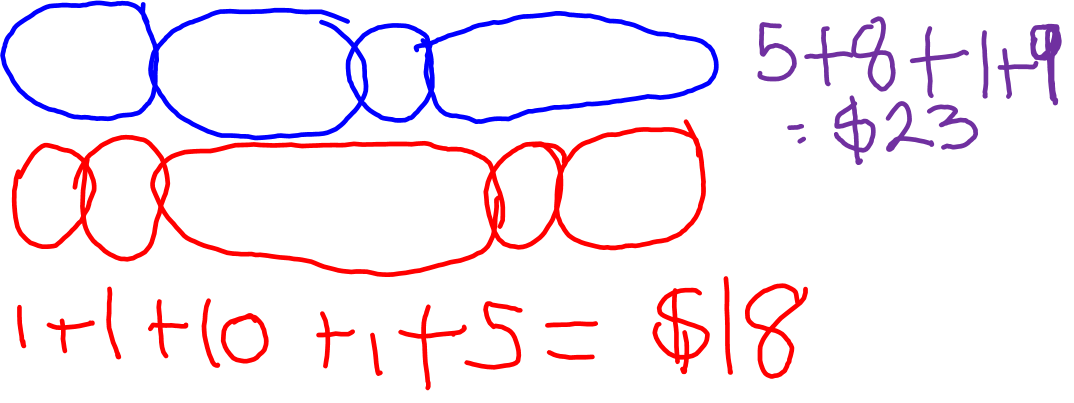 5+8+1+9
= $23
1+1+10+1+5= $18